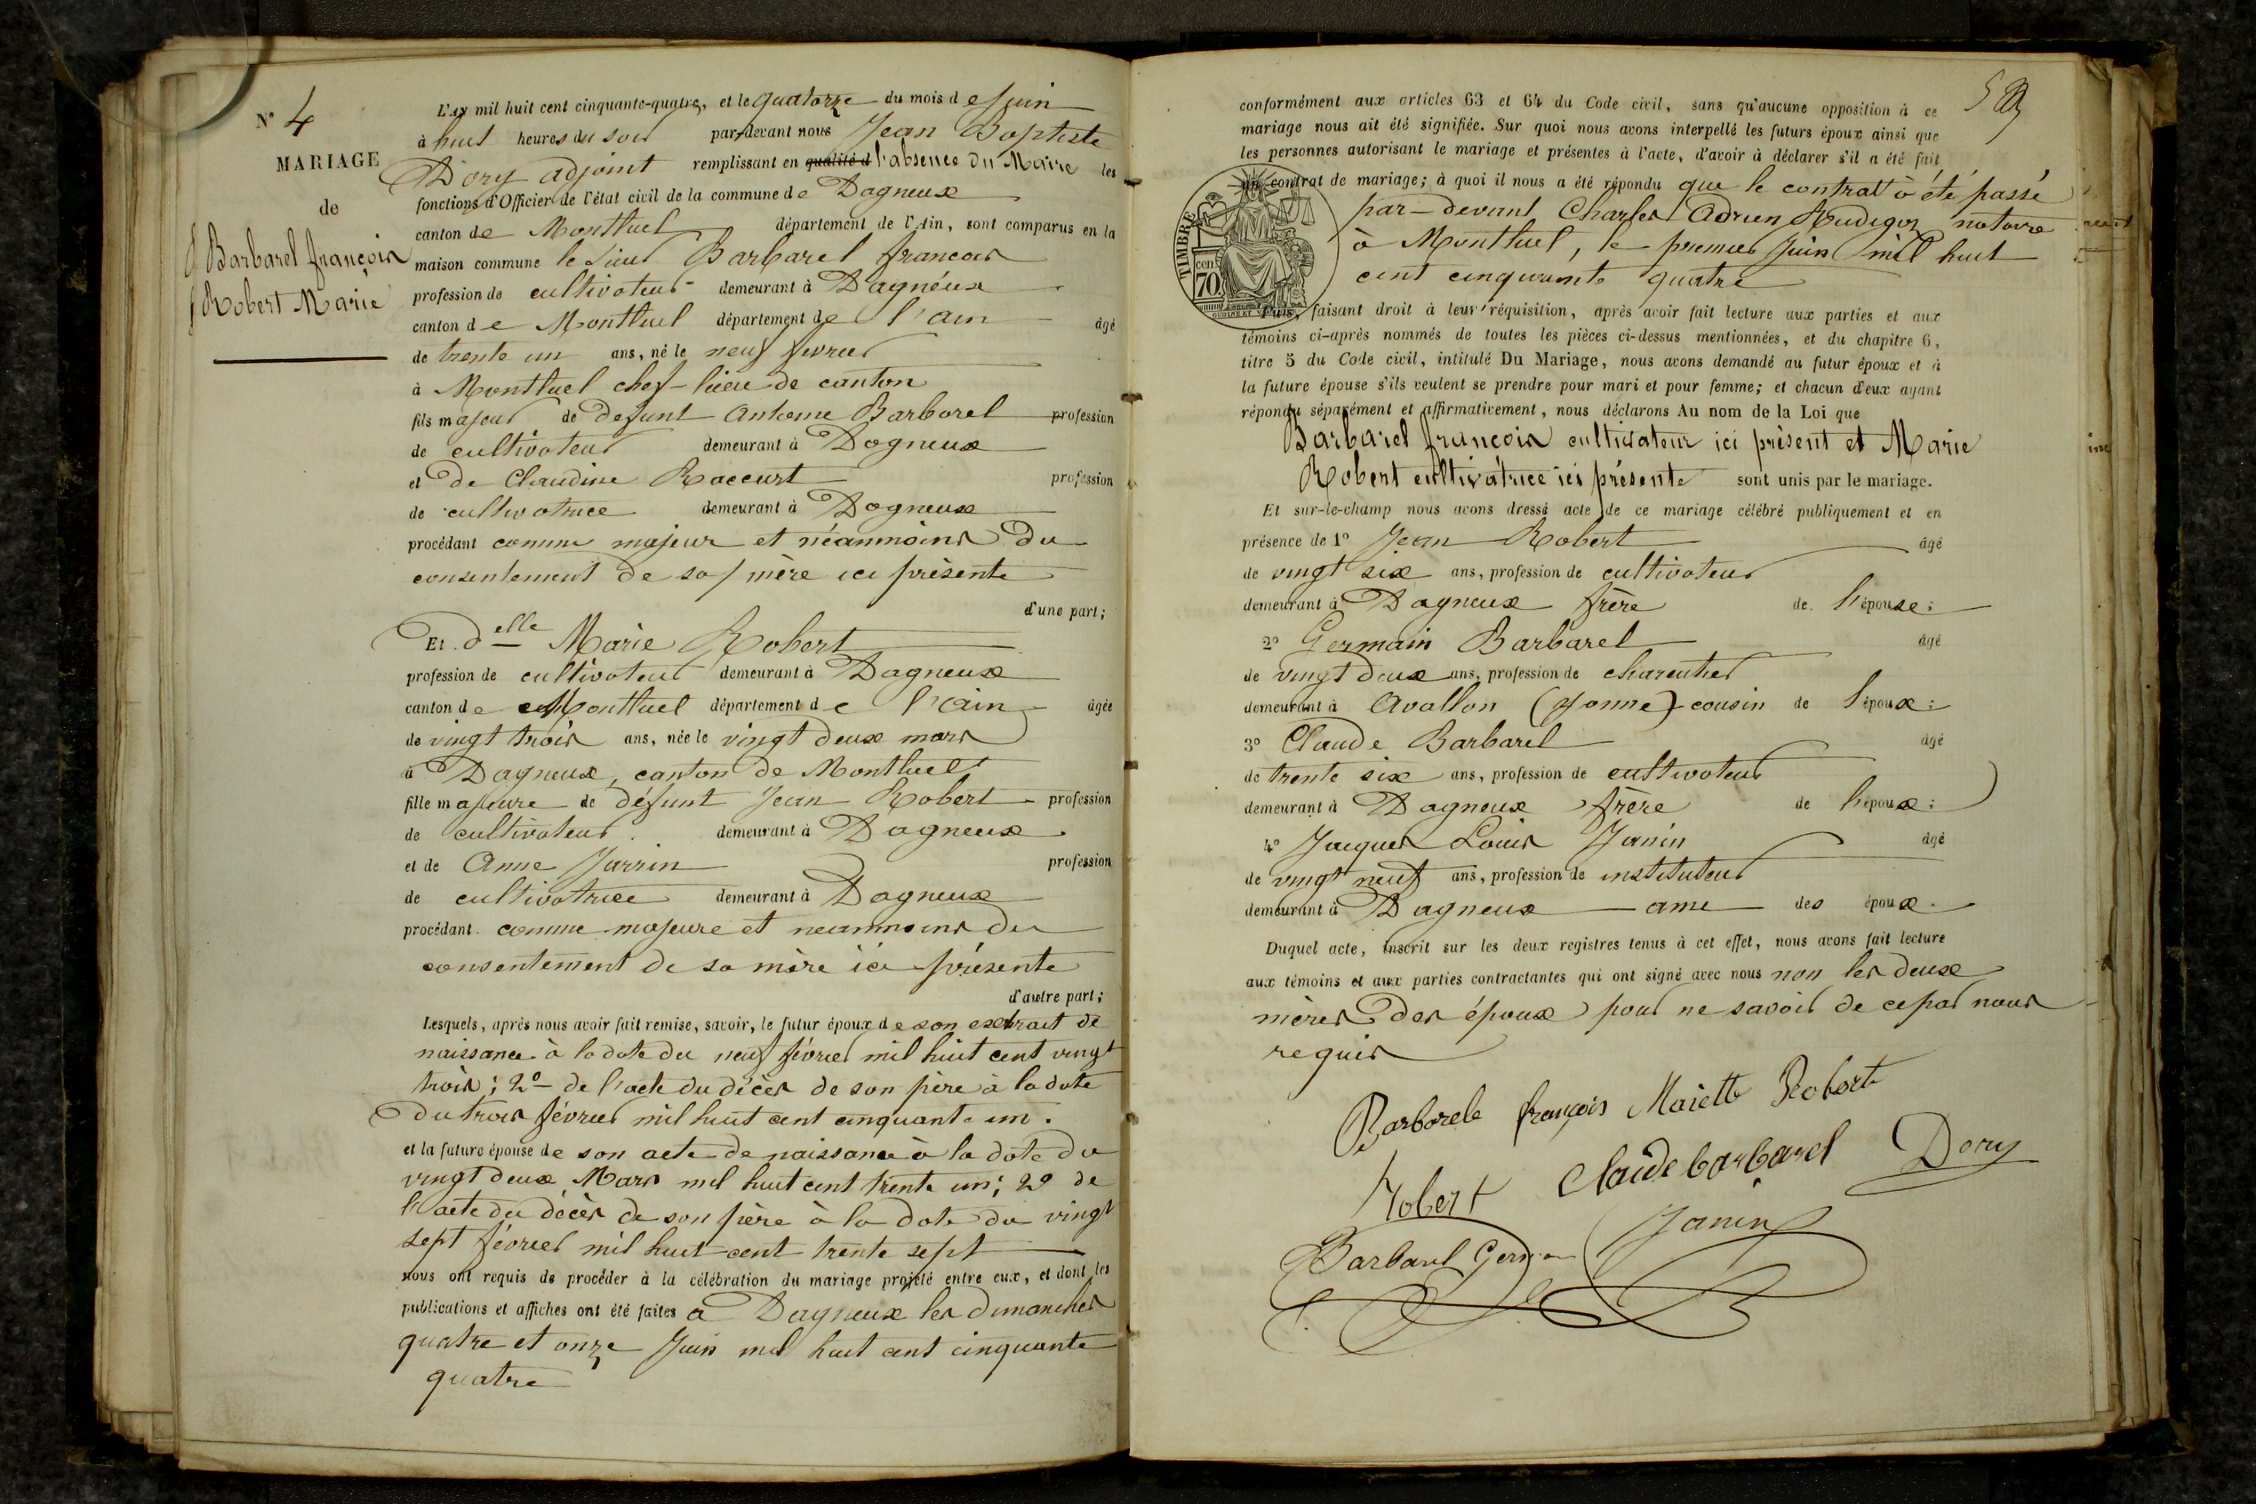 N° 4
MARIAGE
de
Barbarel françois
Robert Marie
L'an mil huit cent cinquante-quatre, et le quatorze du mois de Juin
à huit heures du soir par-devant nous Jean Baptiste
Dory adjoint remplissant en qualité d l'absence du Maire les
fonctions d'Officier de l'état civil de la commune de Dagneux
canton de Montluel département de l'Ain, sont comparus en la
maison commune le Sieur Barbarel francois
profession de cultivateur demeurant à Dagneux
canton de Montluel département de l'ain âgé
de trente un ans, né le neuf fevrier
à Montluel chef-lieu de canton
fils majeur de defunt Antoine Barbarel profession
de cultivateur demeurant à Dagneux
et de Claudine Raccurt profession
de cultivatrice demeurant à Dagneux
procédant comme majeur et néanmoins du
consentement de sa mère ici présente
d'une part;
Et delle Marie Robert
profession de cultivateur demeurant à Dagneux
canton de Montluel département de l'Ain âgée
de vingt trois ans, née le vingt deux mars
à Dagneux, canton de Montluel
fille majeure de défunt Jean Robert profession
de cultivateur demeurant à Dagneux
et de Anne Jarrin profession
de cultivatrice demeurant à Dagneux
procédant comme majeure et neanmoins du
consentement de sa mère ici présente
d'autre part;
Lesquels, après nous avoir fait remise, savoir, le futur époux de son extrait de
naissance à la date du neuf février mil huit cent vingt
trois; 2° de l'acte du décès de son père à la date
du trois février mil huit cent cinquante un.
et la future épouse de son acte de naissance à la date du
vingt deux Mars mil huit cent trente un; 2° de
l'acte du décès de son père à la date du vingt
sept février mil huit cent trente sept
nous ont requis de procéder à la célébration du mariage projeté entre eux, et dont les
publications et affiches ont été faites à Dagneux les dimanches
quatre et onze Juin mil huit cent cinquante
quatre
conformément aux articles 63 et 64 du Code civil, sans qu'aucune opposition à ce
mariage nous ait été signifiée. Sur quoi nous avons interpellé les futurs époux ainsi que
les personnes autorisant le mariage et présentes à l'acte, d'avoir à déclarer s'il a été fait
un contrat de mariage; à quoi il nous a été répondu que le contrat à été passé
par-devant Charles Adrien Rudigoz notaire
à Montluel, le premier Juin mil huit
cent cinquante quatre
TIMBRE
cen
70
Puis, faisant droit à leur réquisition, après avoir fait lecture aux parties et aux
témoins ci-après nommés de toutes les pièces ci-dessus mentionnées, et du chapitre 6,
titre 5 du Code civil, intitulé Du Mariage, nous avons demandé au futur époux et à
la future épouse s'ils veulent se prendre pour mari et pour femme; et chacun d'eux ayant
répondu séparément et affirmativement, nous déclarons Au nom de la Loi que
Barbarel françois cultivateur ici présent et Marie
Robert cultivatrice ici présente sont unis par le mariage.
Et sur-le-champ nous avons dressé acte de ce mariage célébré publiquement et en
présence de 1° Jean Robert âgé
de vingt six ans, profession de cultivateur
demeurant à Dagneux frère de l'épouse;
2° Germain Barbarel âgé
de vingt deux ans, profession de charcutier
demeurant à Avallon (Yonne) cousin de l'époux;
3° Claude Barbarel âgé
de trente six ans, profession de cultivateur
demeurant à Dagneux frère de l'époux;
4° Jacques Louis Janin âgé
de vingt neuf ans, profession de instituteur
demeurant à Dagneux ami des époux.
Duquel acte, inscrit sur les deux registres tenus à cet effet, nous avons fait lecture
aux témoins et aux parties contractantes qui ont signé avec nous non les deux
mères des époux pour ne savoir de ce par nous
requis
Barbarele françois Mariette Robert
Robert Claude barbarel Dory
Barbarel Germain Janin